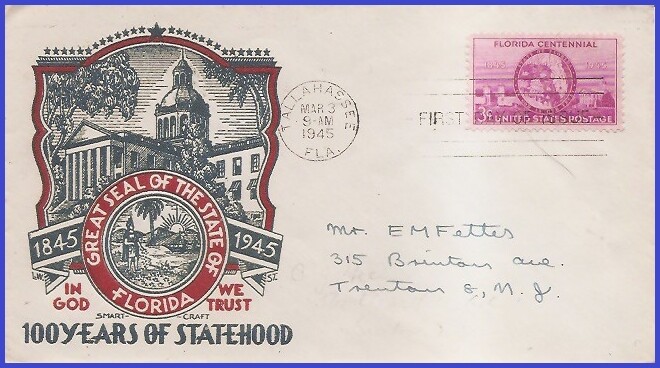 1845 GREAT SEAL OF THE STATE OF FLORIDA 1945
IN GOD WE TRUST
SMART CRAFT
100 YEARS OF STATEHOOD
TALLAHASSEE
MAR 3
9-AM
1945
FLA.
FLORIDA CENTENNIAL
1845 1945
3¢ UNITED STATES POSTAGE
FIRST
Mr. E M Fetter
315 Brinton Ave.
Trenton 8, N. J.